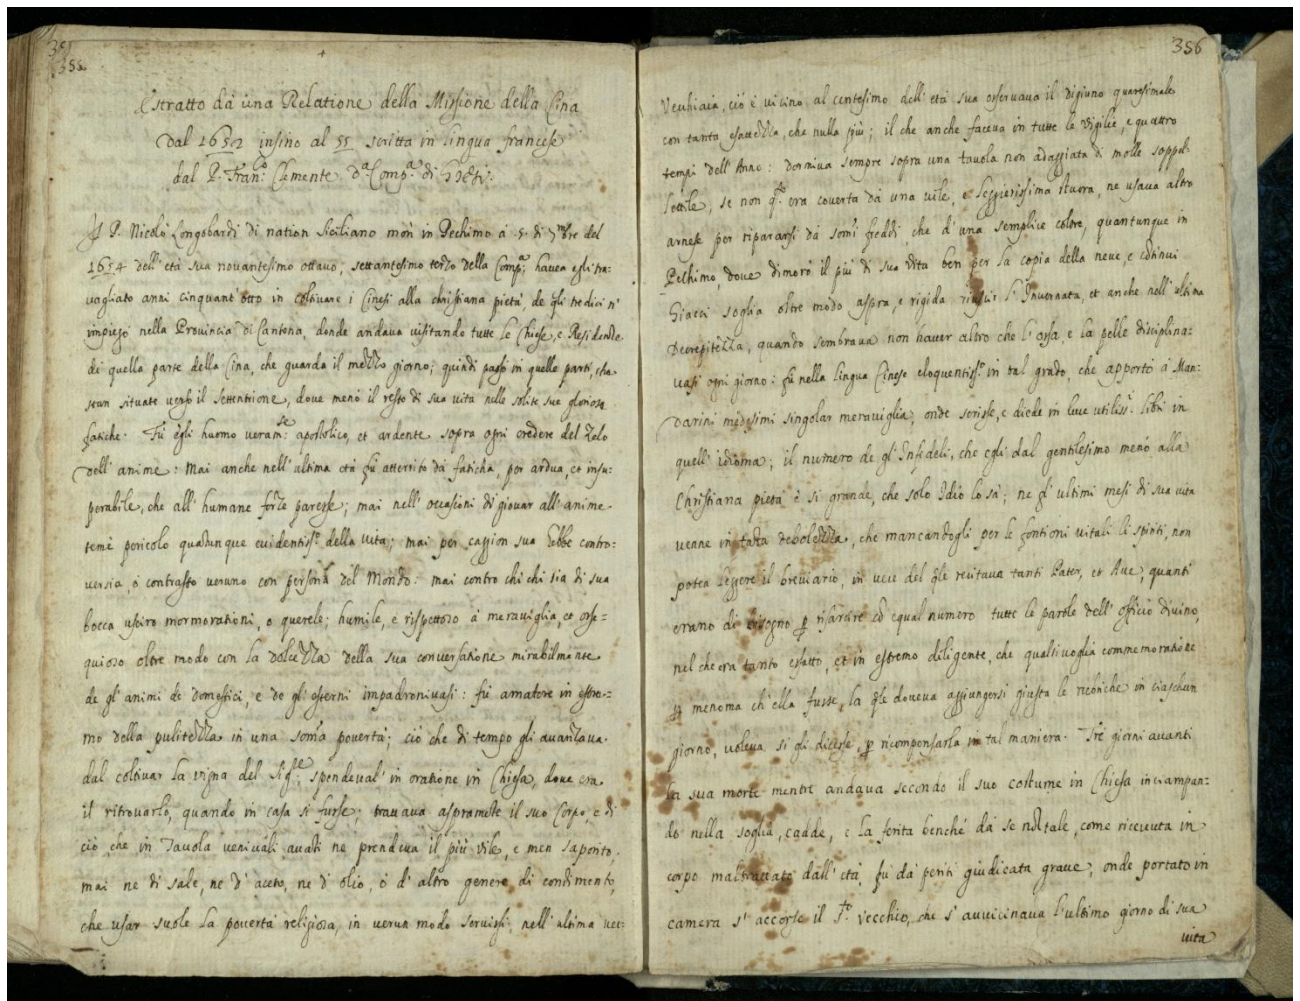 355
Estratto da una Relatione della Missione della Cina
Dal 1652 insino al 55 scritta in lingua francese
dal P. Fran.co Clemente D.a Comp.a di Giesù.
Il P. Nicolò Longobardi di nation Siciliano morì in Pechimo à 5. di 7mbre del
1654 dell' età sua novantesimo ottavo, settantesimo terzo della Comp.a; havea egli tra-
vagliato anni cinquant' otto in coltivare i Cinesi alla christiana pietà, de gli tredici n'
impiegò nella Provincia di Cantona, donde andava visitando tutte le Chiese, e Residenze
di quella parte della Cina, che guarda il mezzo giorno; quindi passò in quelle parti, che
stan situate verso il settentrione, dove menò il resto di sua vita nelle solite sue gloriose
fatiche. Fù egli huomo veram.se apostolico, et ardente sopra ogni credere del zelo
dell' anime: mai anche nell' ultima età fù atterrito da faticha, per ardua, et insu-
perabile, che all' humane forze paresse; mai nell' occasioni di giovar all' anime
temè pericolo quatunque evidentiss.o della vita; mai per caggion sua hebbe contro-
versia, ò contrasto veruno con persona del Mondo: mai contro chi chi sia di sua
bocca usciro mormorationi, o querele; humile, e rispettoso à meraviglia, et osse-
quioso oltre modo con la dolcezza della sua conversatione mirabilmente
de gl' animi de domestici, e de gli esterni impadronivasi: fù amatore in estre-
mo della pulitezza in una soma povertà; ciò che di tempo gli avanzava
dal coltivar la vigna del Sig.re spendeval' in oratione in Chiesa, dove era
il ritrovarlo, quando in casa si fusse; trattava aspramēte il suo Corpo, e di
ciò che in Tavola venivali avāti ne prendeva il più vile, e men saporito,
mai ne di sale, ne d' aceto, ne d' olio, ò d' altro genere di condimento,
che usar suole la povertà religiosa, in verun modo servissi; nell' ultima vec-
356
Vecchiaia, ciò è vicino al centesimo dell' età sua osservava il digiuno quaresimale
con tanta esattezza, che nulla più; il che anche faceva in tutte le vigilie, e quattro
tempi dell' Anno: dormiva sempre sopra una tavola non adaggiata di molle soppel-
lettile, se non q.to era coverta da una vile, e leggierissima stuora, ne usava altro
arnese per ripararsi da somi freddi, che d' una semplice coltre, quantunque in
Pechimo, dove dimorò il più di sua vita ben per la copia della neve, e cōtinui
Giacci soglia oltre modo aspra, e rigida riuscir l' Invernata, et anche nell' ultima
Decrepitezza, quando sembrava non haver altro che l' ossa, e la pelle disciplina-
vasi ogni giorno: fù nella lingua Cinese eloquentiss.o in tal grado, che apportò à Man-
darini medesimi singolar meraviglia, onde scrisse, e diede in luce utiliss.i libri in
quell' idioma; il numero de gl' Infedeli, che egli dal gentilesimo menò alla
Christiana pietà è si grande, che solo Idio lo sà; ne gl' ultimi mesi di sua vita
venne in tāta debolezza, che mancandogli per le fontioni vitali li spiriti, non
potea leggere il breviario, in vece del q.le recitava tanti Pater, et Ave, quanti
erano di bisogno p risarcire cō equal numero tutte le parole dell' officio divino,
nel che era tanto esatto, et in estremo diligente, che qualsivoglia commemoratiōe
p menoma ch' ella fusse, la q.le doveva aggiungersi giusta le rubriche in ciaschun
giorno, voleva si gli dicesse, p ricompensarla in tal maniera. Trè giorni avanti
la sua morte mentre andava secondo il suo costume in Chiesa inciampan-
do nella soglia, cadde, e la ferita benche da se nō tale, come ricevuta in
corpo maltrattato dall' età, fù dà periti giudicata grave; onde portato in
camera s' accorse il S.to vecchio, che s' avvicinava l' ultimo giorno di sua
vita